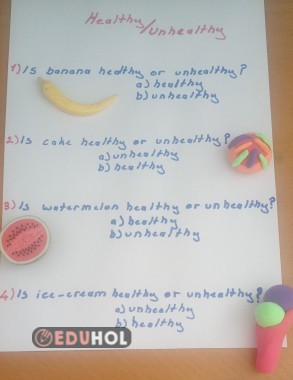 Healthy/Unhealthy
1) Is banana healthy or unhealthy?
a) healthy
b) unhealthy
2) Is cake healthy or unhealthy?
a) unhealthy
b) healthy
3) Is watermelon healthy or unhealthy?
a) healthy
b) unhealthy
4) Is ice-cream healthy or unhealthy?
a) unhealthy
b) healthy
EDUHOL